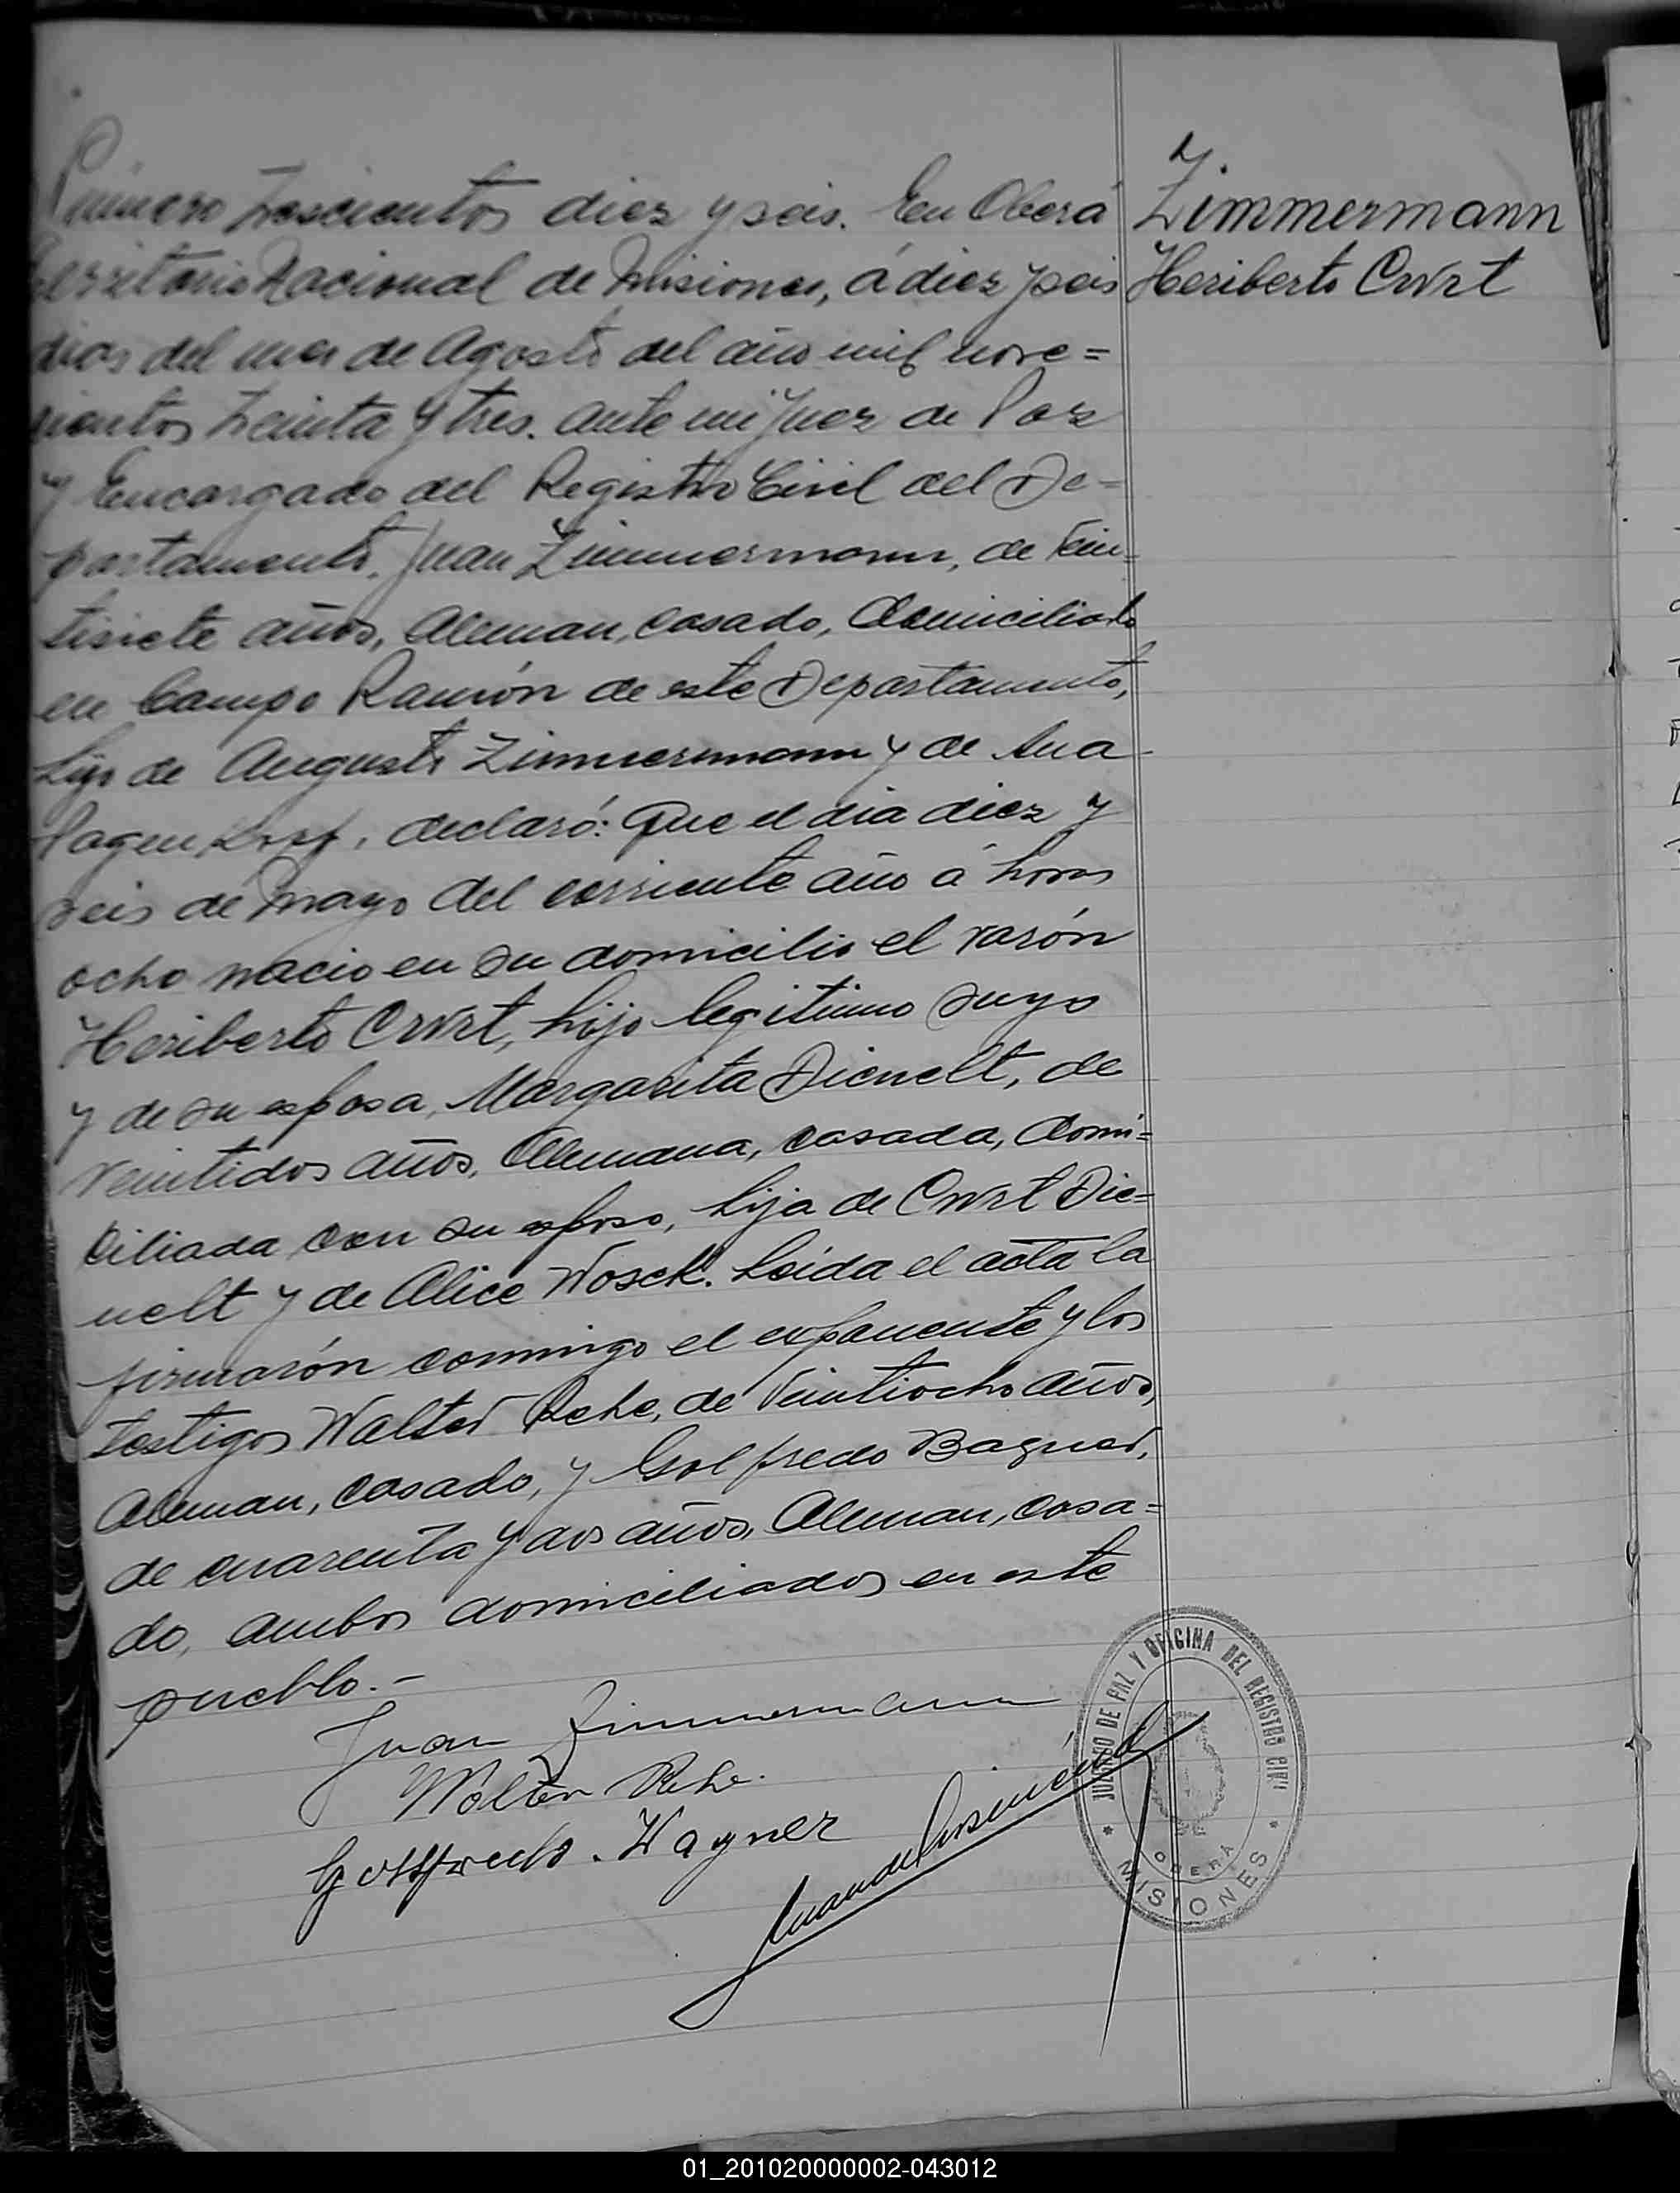 Z.
Zimmermann
Heriberto Cwrt
Número Trescientos diez y seis. En Oberá
Territorio Nacional de Misiones, á diez y seis
dias del mes de Agosto del año mil nove=
cientos treinta y tres. ante mi Juez de Paz
y Encargado del Registro Civil del De=
partamento, Juan Zimmermann, de vein=
tisiete años, Aleman, casado, domiciliado
en Campo Ramón de este Departamento,
hijo de Augusto Zimmermann y de Ana
declaró: Que el dia diez y
seis de Mayo del corriente año á horas
ocho nacio en su domicilio el varón
Heriberto Cwrt, hijo legitimo suyo
y de su esposa, Margarita Dienelt, de
veintidos años, Alemana, casada, domi=
ciliada con su esposo, hija de Cwrt Die=
nelt y de Alice Wosck. Leida el acta la
firmarón conmigo el exponente y los
testigos Walter Rehe, de veintiocho años,
Aleman, casado, y Golfredo Bagner,
de cuarenta y dos años, Aleman, casa=
do, ambos domiciliados en este
pueblo.-
Juan Zimmermann
Walter Rehe.
Gottfredo. Wagner
JUZGADO DE PAZ Y OFICINA DEL REGISTRO CIVIL
OBERÁ
* MISIONES *
01_201020000002-043012